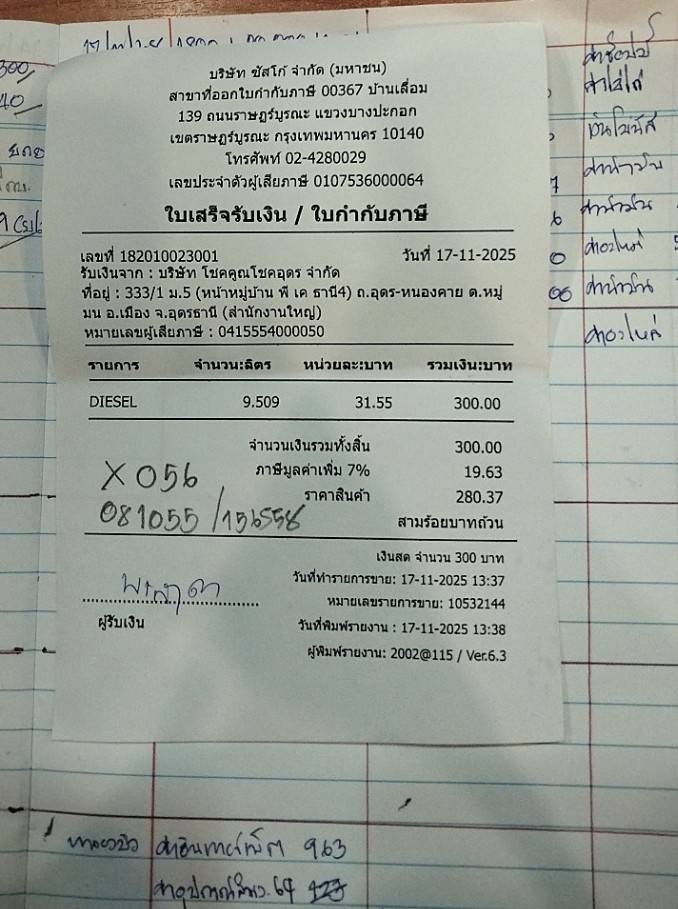 บริษัท ซัสโก้ จำกัด (มหาชน)
สาขาที่ออกใบกำกับภาษี 00367 บ้านเลื่อม
139 ถนนราษฎร์บูรณะ แขวงบางปะกอก
เขตราษฎร์บูรณะ กรุงเทพมหานคร 10140
โทรศัพท์ 02-4280029
เลขประจำตัวผู้เสียภาษี 0107536000064
ใบเสร็จรับเงิน / ใบกำกับภาษี
เลขที่ 182010023001 วันที่ 17-11-2025
รับเงินจาก : บริษัท โชคคูณโชคอุดร จำกัด
ที่อยู่ : 333/1 ม.5 (หน้าหมู่บ้าน พี เค ธานี4) ถ.อุดร-หนองคาย ต.หมู
มน อ.เมือง จ.อุดรธานี (สำนักงานใหญ่)
หมายเลขผู้เสียภาษี : 0415554000050
รายการ จำนวน:ลิตร หน่วยละ:บาท รวมเงิน:บาท
DIESEL 9.509 31.55 300.00
จำนวนเงินรวมทั้งสิ้น 300.00
ภาษีมูลค่าเพิ่ม 7% 19.63
ราคาสินค้า 280.37
X 056
081055 / 156558
สามร้อยบาทถ้วน
เงินสด จำนวน 300 บาท
วันที่ทำรายการขาย: 17-11-2025 13:37
หมายเลขรายการขาย: 10532144
ผู้รับเงิน
วันที่พิมพ์รายงาน : 17-11-2025 13:38
ผู้พิมพ์รายงาน: 2002@115 / Ver.6.3
300
40
ค่าน้ำมัน
ค่าน้ำมัน
ค่าอะไหล่
ค่าน้ำมัน
ค่าอะไหล่
ค่าอินเทอร์เน็ต 963